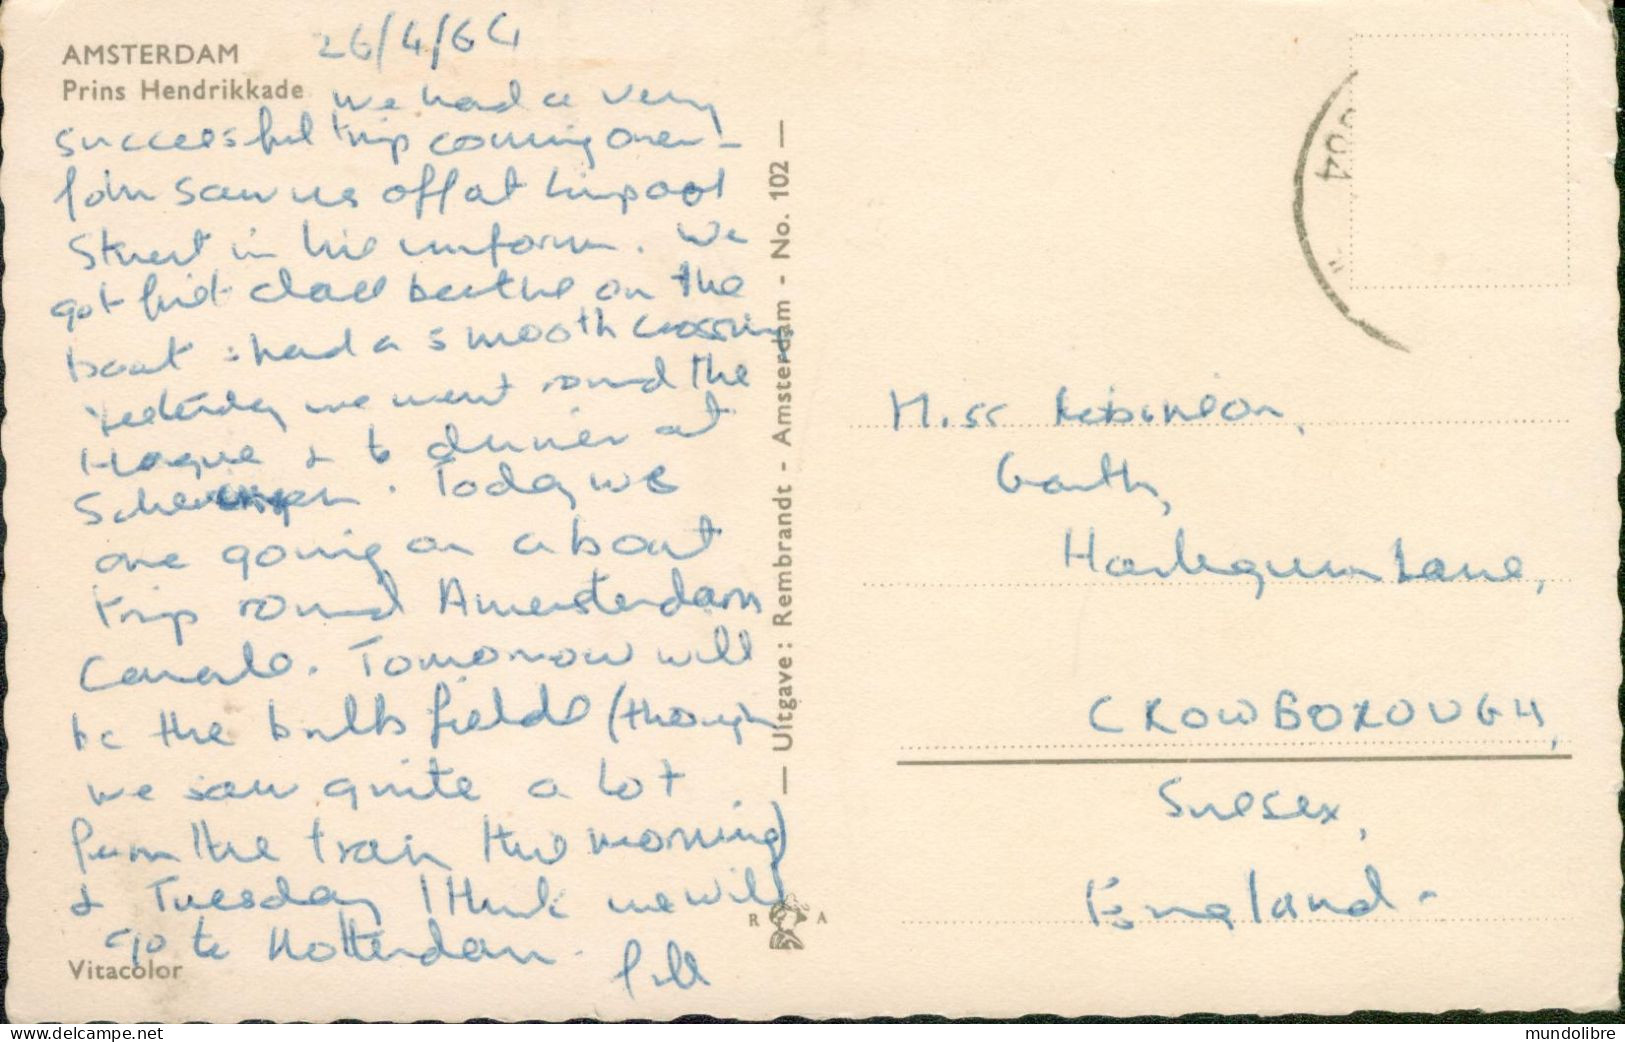 AMSTERDAM
Prins Hendrikkade
26/4/64
We had a very
successful trip coming over -
John saw us off at Liverpool
Street in his uniform. We
got first class berths on the
boat & had a smooth crossing
Yesterday we went round the
Hague & to dinner at
Today we
are going on a boat
trip round Amersterdam
Canals. Tomorrow will
be the bulb fields (though
we saw quite a lot
from the train this morning)
& Tuesday I think we will
go to Rotterdam.
Vitacolor
— Uitgave: Rembrandt - Amsterdam - No. 102 —
R A
Miss Robinson,
Garth,
Harlequin Lane,
CROWBOROUGH,
Sussex,
England.
mundolibre